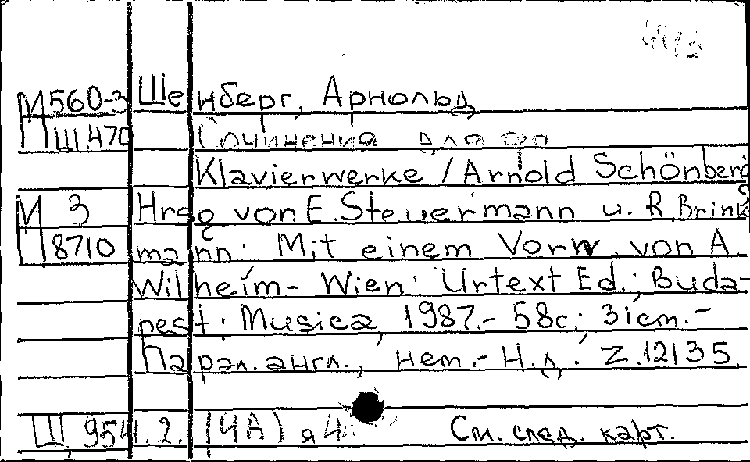 М560-3 Шенберг, Арнольд
Ш470 Сочинения для фп
Klavierwerke / Arnold Schönberg
М 3 Hrsg von E. Steuermann u. R. Brink
8710 mann. Mit einem Vorw. von A.
Wilheim - Wien: Urtext Ed.; Buda-
pest: Musica, 1987.- 58с.; 31см.-
Парал. англ., нем.- Н.д.: Z.12135.
Щ 954.2.(4А)я4 См. след. карт.